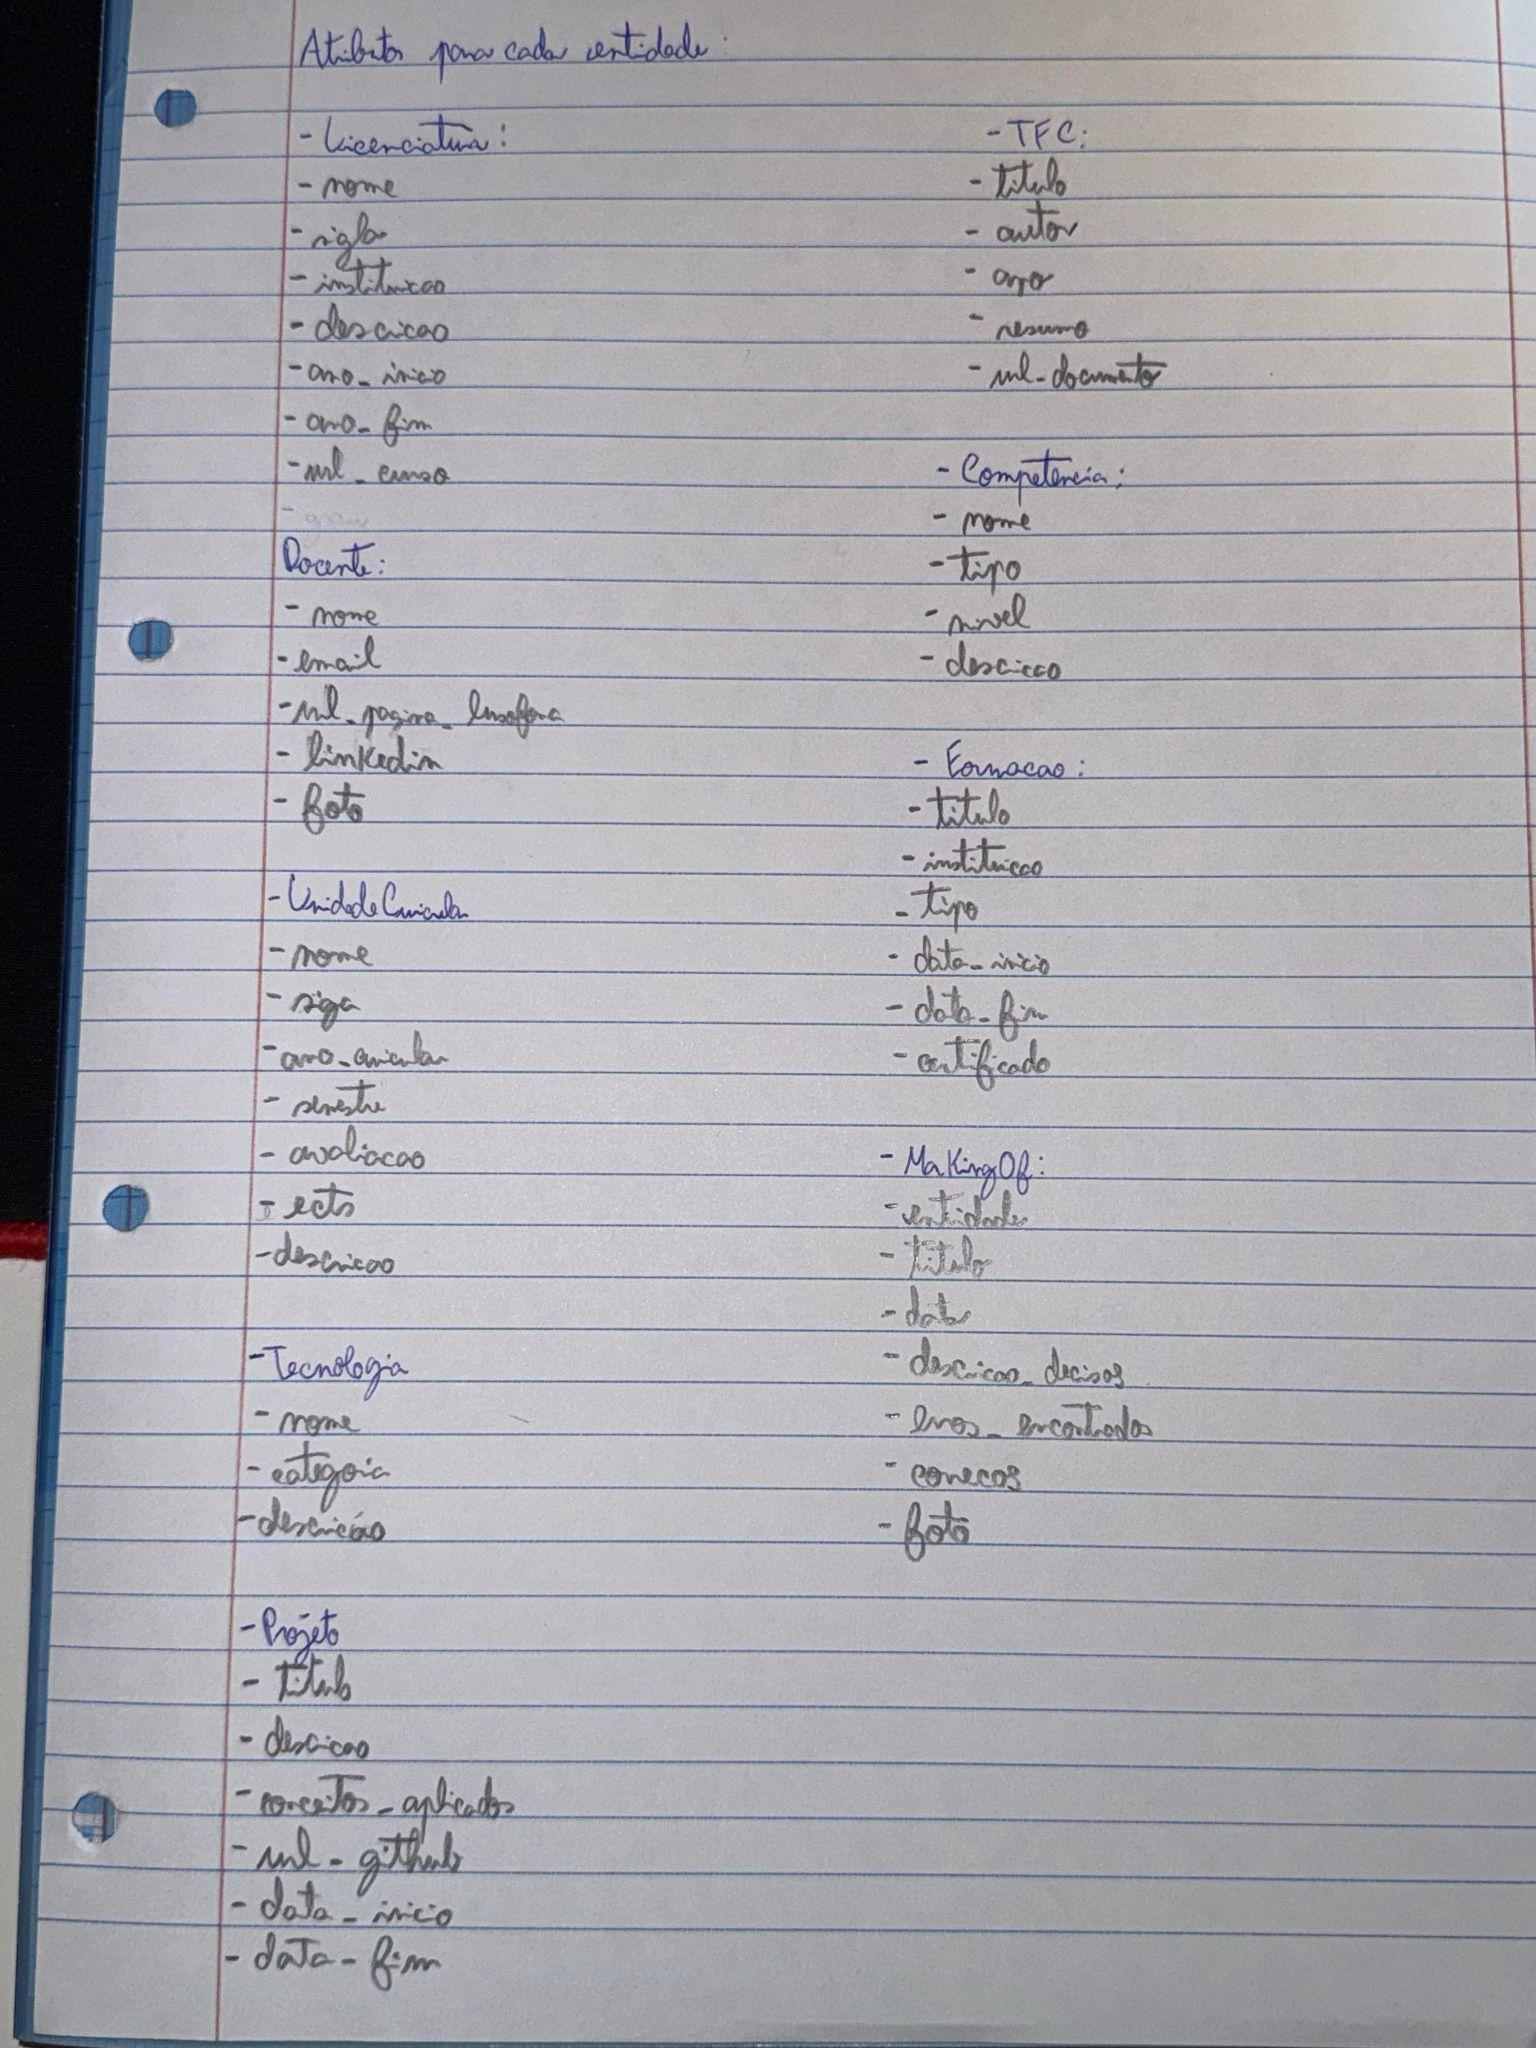 Atributos para cada entidade:
- Licenciatura:
- nome
- sigla
- instituicao
- descricao
- ano_inicio
- ano_fim
- url_curso
Docente:
- nome
- email
- url_pagina_lusofona
- linkedin
- foto
- UnidadeCurricular
- nome
- siga
- ano_curricular
- semestre
- avaliacao
- ects
- descricao
- Tecnologia
- nome
- categoria
- descricáo
- Projeto
- titulo
- descricao
- conceitos_aplicados
- url_github
- data_inicio
- data_fim
- TFC:
- titulo
- autor
- ano
- resumo
- url_documento
- Competencia:
- nome
- tipo
- nivel
- descricao
- Formacao:
- titulo
- instituicao
- tipo
- data_inicio
- data_fim
- certificado
- MakingOf:
- entidade
- titulo
- data
- descricao_decisos
- erros_encontrados
- correcos
- foto